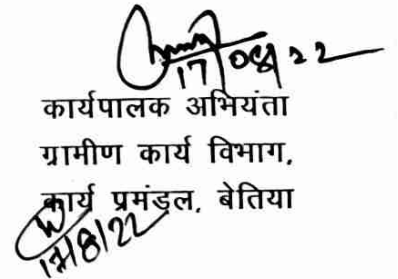 17/08/22
कार्यपालक अभियंता
ग्रामीण कार्य विभाग,
कार्य प्रमंडल, बेतिया
17/8/22